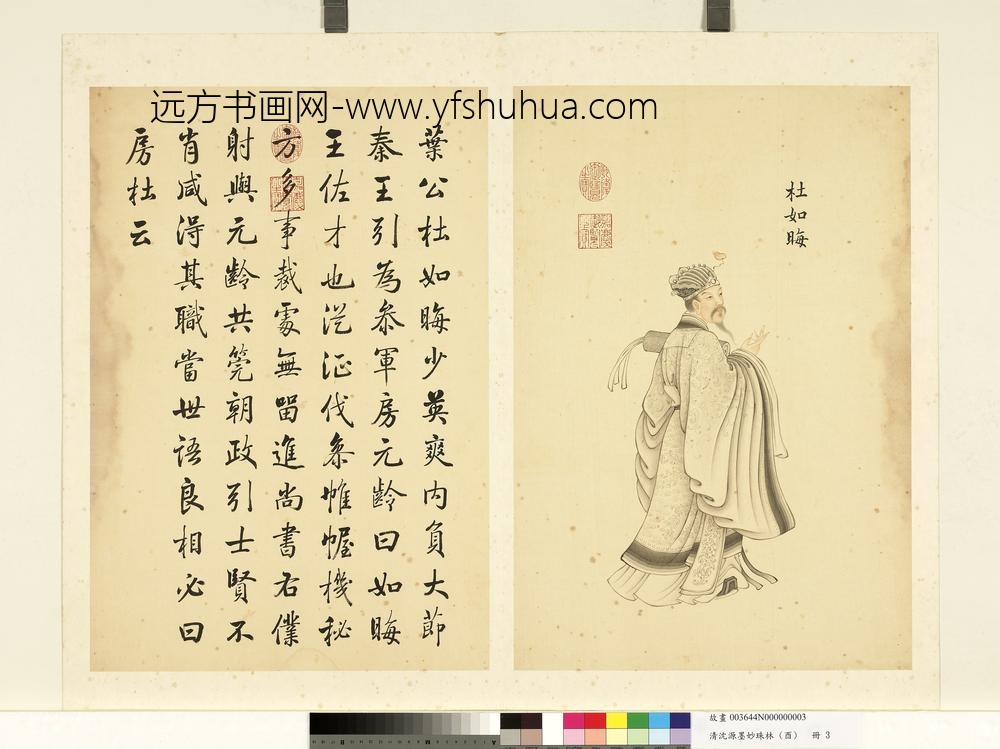 远方书画网-www.yfshuhua.com
杜如晦
葉公杜如晦少英爽内負大節
秦王引為叅軍房元齡曰如晦
王佐才也從征伐叅帷幄機秘
方多事裁處無留進尚書右僕
射與元齡共筦朝政引士賢不
肖咸得其職當世語良相必曰
房杜云
故畫 003644N000000003
清沈源墨妙珠林（酉） 冊 3